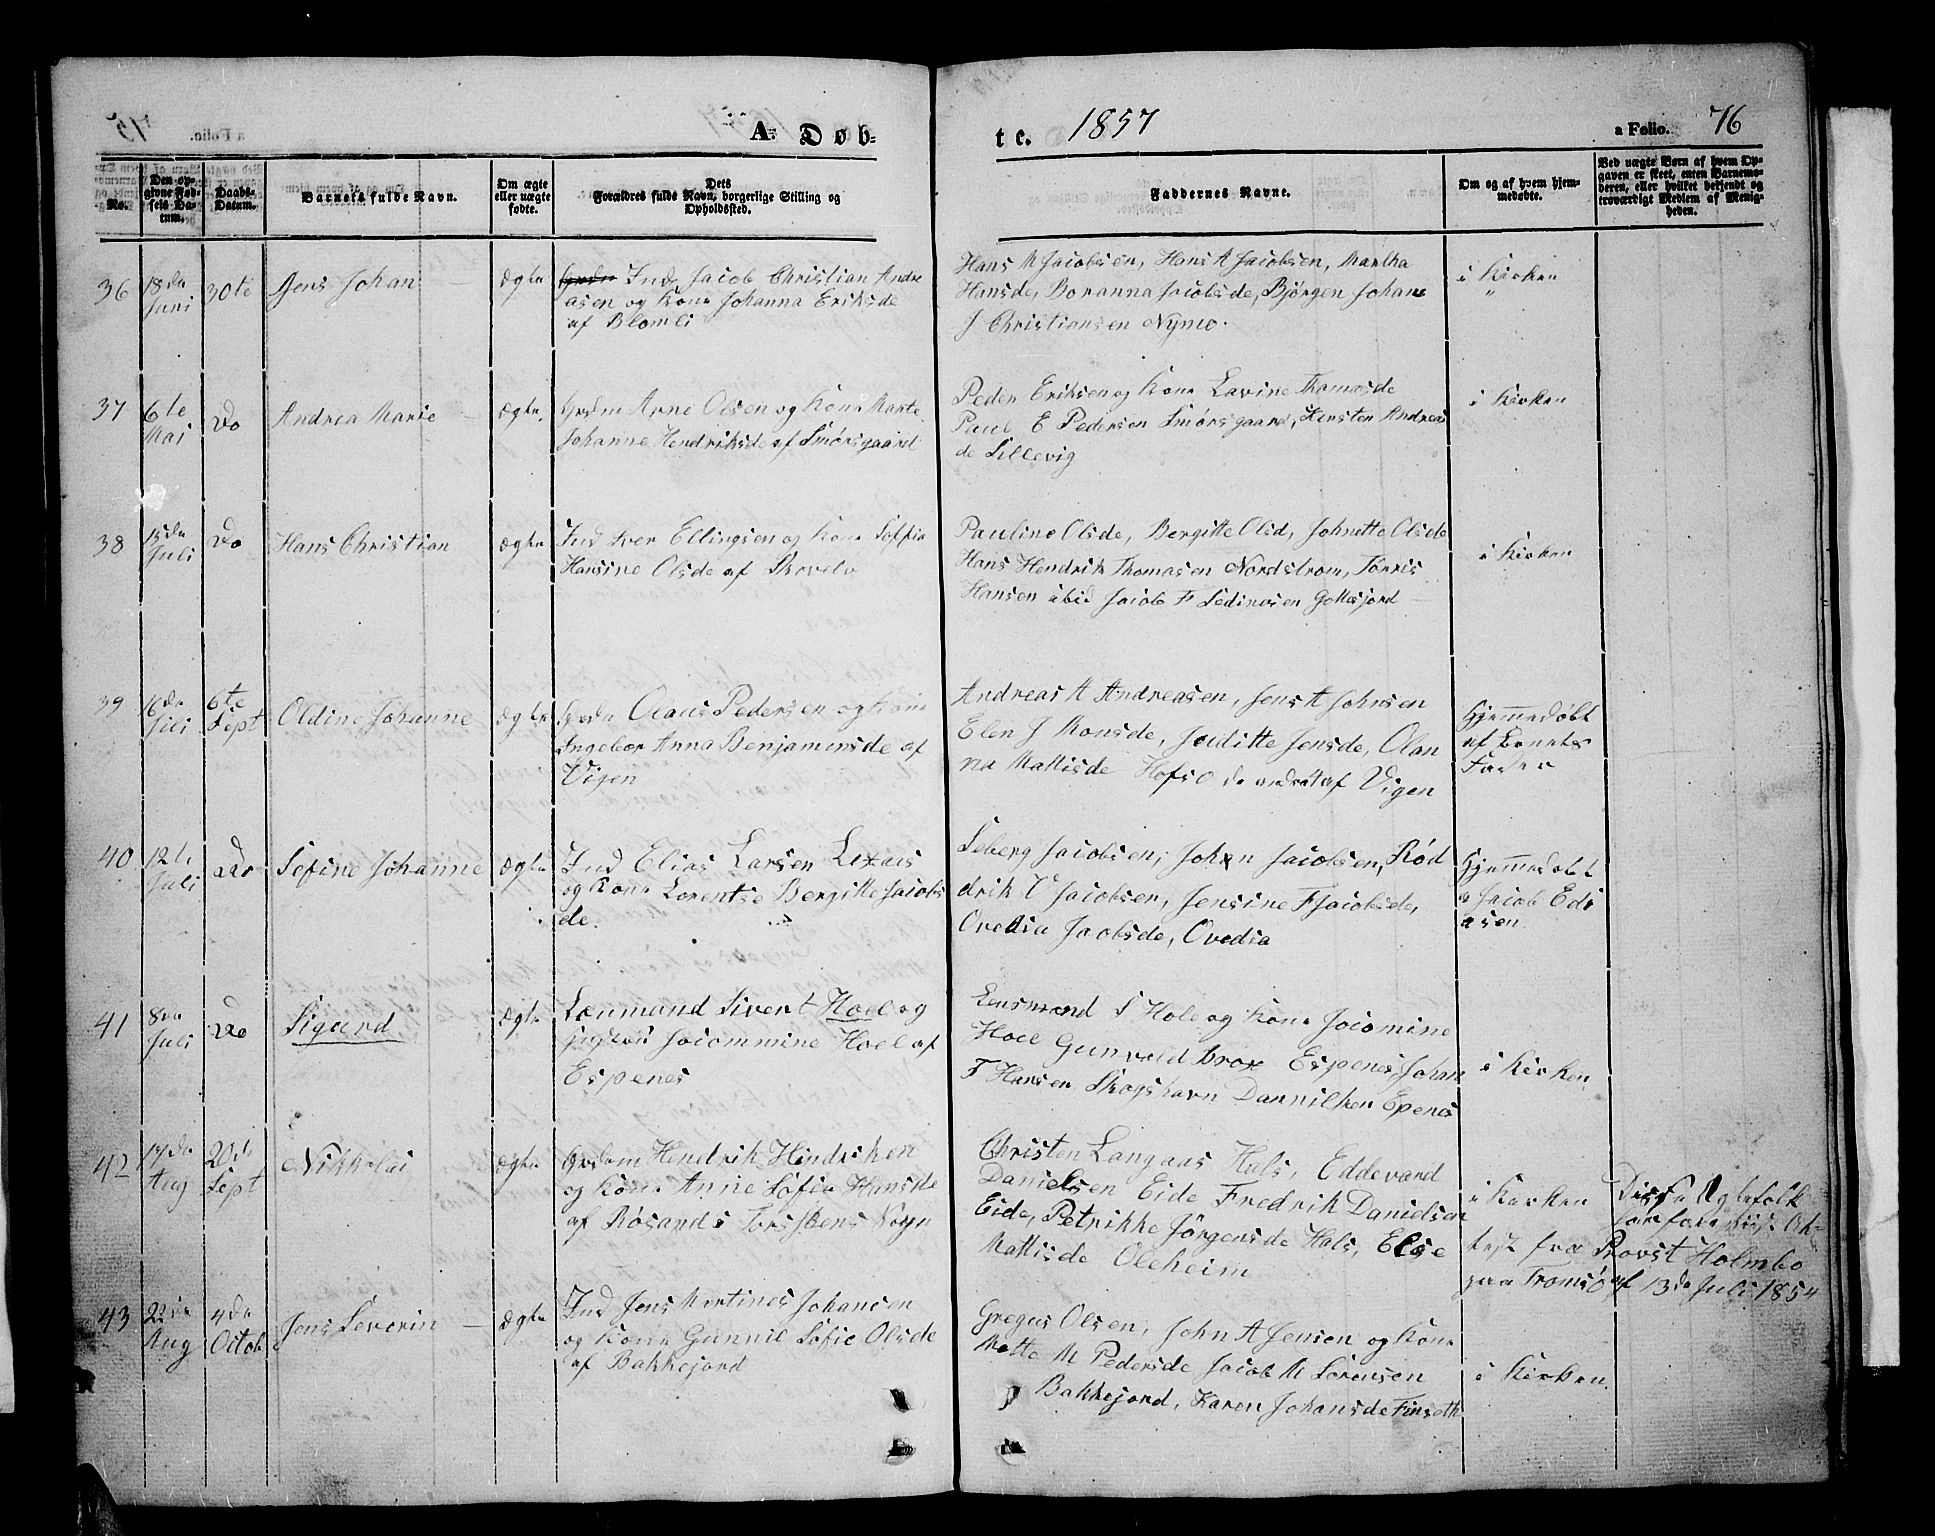 A. Døb-
te. 1857
a Folio. 76
No.
Den op-
givne Fød-
sels Da-
tum.
Daabs-
Datum.
Barnets fulde Navn.
Om ægte
eller uægte
fødte.
Dets
Forældres fulde Navn, borgerlige Stilling og
Opholdssted.
Faddernes Navne.
Om og af hvem hjem-
medøbte.
Ved uægte Børn af hvem Op-
gaven er skeet, enten Barnemo-
deren, eller hvilket bekjendt og
troværdigt Medlem af Menig-
heden.
36
18de
Juni
30te
Jens Johan
Ægte
Ind Jacob Christian Andre
asen og Kone Johanna Eriksde
af Blomli
Hans M Jacobsen, Hans A Jacobsen, Martha
Hansde, Boranna Jacobsde, Bjørgen Johan
J Christiansen Nymo.
i Kirken
37
6te
Mai
Do
Andrea Marie
Ægte
Grdm Arne Olsen og Kone Marte
Johanne Hendriksde af Smørsgaard
Peder Eriksen og Kone Lavine Thomasde
Paul E Pedersen Smørsgaard, Kirsten Andrea
de Lillevig
i Kirken
38
15de
Juli
Do
Hans Christian
Ægte
Ind Iver Ellingsen og Kone Soffia
Hansine Olsde af Skovelv
Pauline Olsde, Bergitte Olsd, Johnette Olsde
Hans Hendrik Thomasen Nordstrøm, Tørris
Hansen ibid Jacob F Sedinosen Gottesjord
i Kirken
39
16de
Juli
6te
Sept
Oldine Johanne
Ægte
Claus Pedersen og Kone
Ingebor Anna Benjaminsde af
Vigen
Andreas A Andreasen, Jens A Johnsen
Elen J Monsde, Juditte Jensde, Olan
na Mattisde Hofsø de andre af Vigen
Hjemmedøbt
af Barnets
Fader
40
12te
Juli
Do
Sefine Johanne
Ægte
Ind Elias Larsen Lexaus
og Kone Lorentse Bergitte Jacobs
de.
Seberg Jacobsen, Johan Jacobsen, Rød
drik V Jacobsen, Jensine F Jacobsde,
Ovedia Jacobsde, Ovedia
Hjemmedøbt
a Jacob Edi
asen
41
8de
Juli
Do
Sigurd
Ægte
Lænmand Sivert Hoel og
Jacommine Hoel af
Espenes
Lensmand S Hole og Kone Jacomine
Hoel Gunvald Brox Espenes, Johan
F Hansen Skogshavn Dannilken Epenes
i Kirken
42
17de
Aug
20de
Sept
Nikkolai
Ægte
Grdm Hendrik Hindriken
og Kone Anne Sofia Hansde
af Røsands
Christen Langaas Hals, Eddevard
Danielsen Eide Fredrik Danielsen
Eide, Petrikke Jørgensde Hals, Else
Mattisde Oleheim
i Kirken
Disse Ægtefolk
test fra Provst Holmbo
paa Tromsø af 13de Juli 1854
43
22de
Aug
4de
Octob
Jens Severin
Ægte
Ind Jens Martines Johansen
og Kone Gunnil Sofie Olsde
af Bakkejord
Gregus Olsen, John A Jenson og Kone
Mette M Pedersde Jacob M Sørensen
Bakkejord, Karen Johansde Finseth
i Kirken